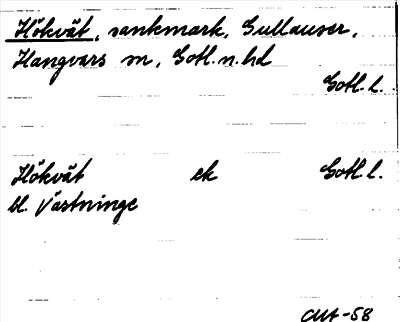 Hökvät, sankmark, Gullauser,
Hangvars sn, Gotl. n. hd
Gotl. l.
Hökvät ek Gotl. l.
bl. Västninge
CMA-58